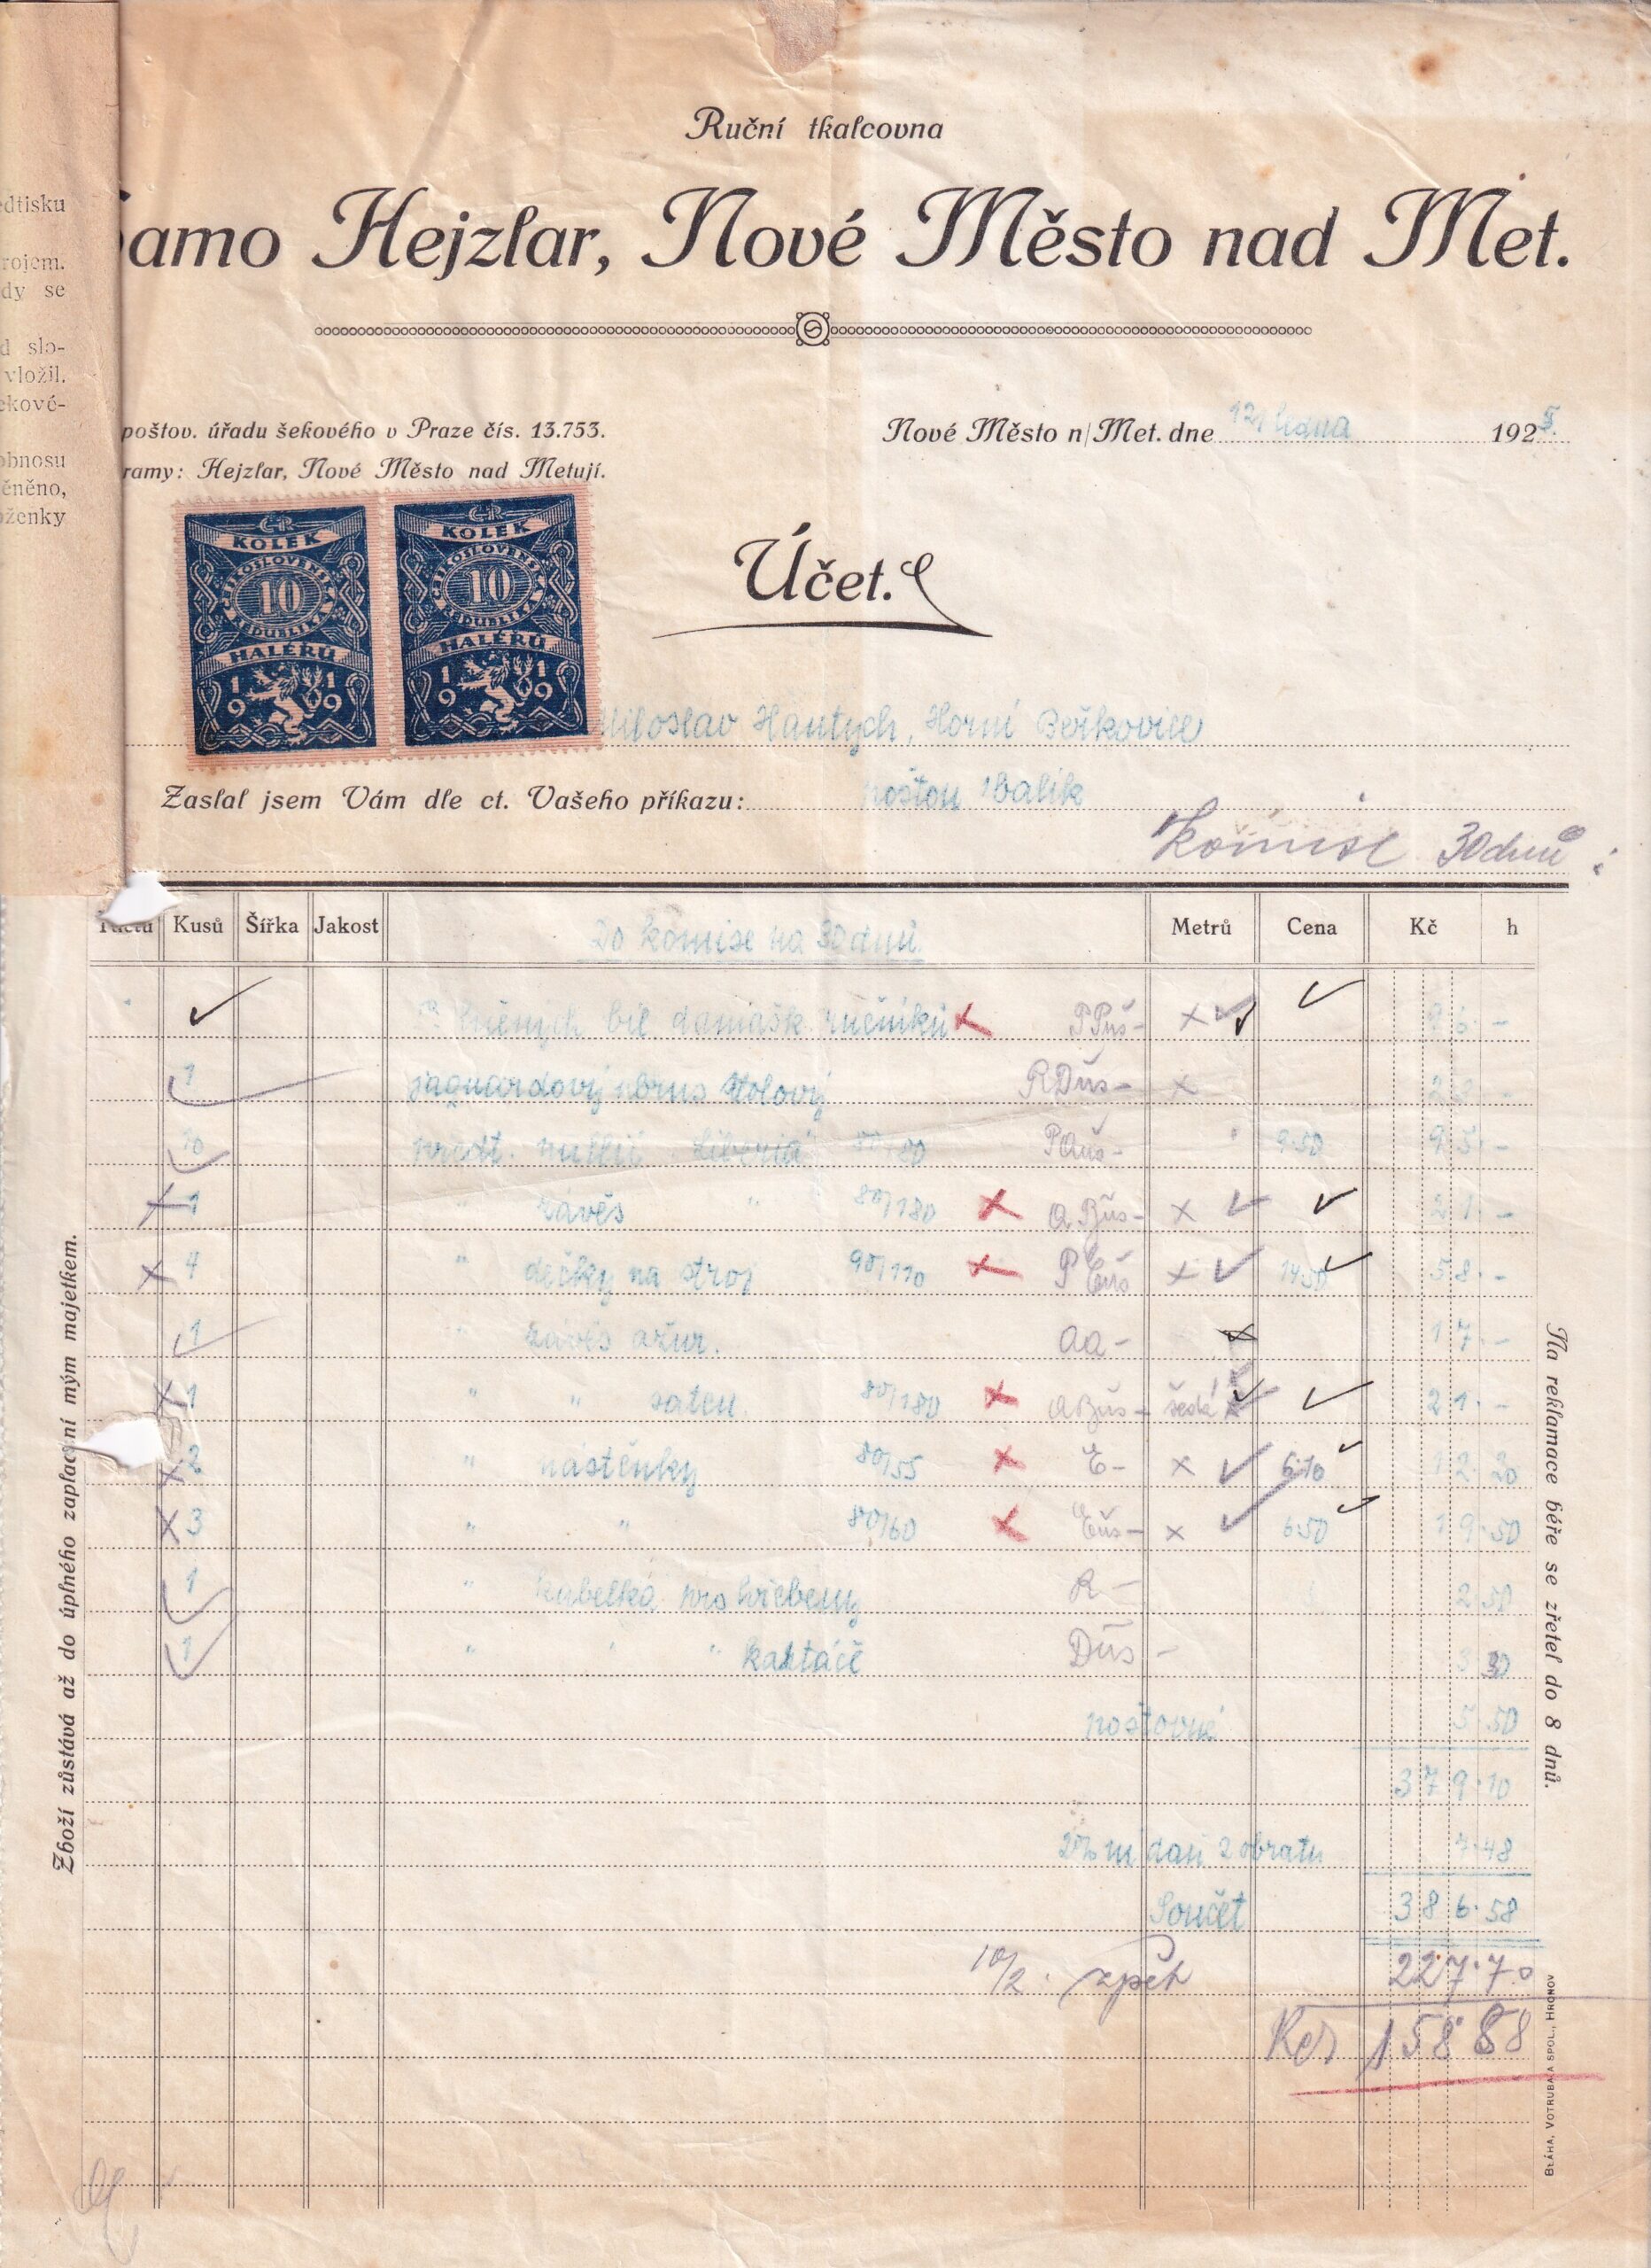 Ruční tkalcovna
amo Hejzlar, Nové Město nad Met.
edtisku
rojem.
dy se
d slo-
vložil.
ekové-
obnosu
ěněno,
oženky
poštov. úřadu šekového v Praze čís. 13.753.
Nové Město n/Met. dne 12/ ledna 1925.
ramy: Hejzlar, Nové Město nad Metují.
ČSR KOLEK ČESKOSLOVENSKÁ REPUBLIKA 10 HALÉŘŮ 1919
ČSR KOLEK ČESKOSLOVENSKÁ REPUBLIKA 10 HALÉŘŮ 1919
Účet.
Miloslav Hantych, Horní Beřkovice
Zaslal jsem Vám dle ct. Vašeho příkazu: poštou 1 balík
komise 30 dnů
Tuctů Kusů Šířka Jakost Do komise na 30 dnů. Metrů Cena Kč h
lněných bíl. damašk. ručníků PPuš- 96 -
1 jaquardový ubrus stolový RDůs- 23 -
10 80/80 9·50 95·-
1 " závěs " 80/180 aBůs- 21·-
4 " dečky na stroj 90/110 14.50 58·-
1 " závěs ažur. aa- 17·-
1 " " saten. 80/180 aBůs- šedá 21·-
2 " nástěnky 80/55 E- 6·10 12·20
3 " " 80/60 Eůs- 6·50 19·50
1 " kabelka pro hřebeny R- 2·50
1 " " " kartáče Důs- 3 30
poštovné 5·50
379·10
2% ní daň z obratu 7·48
Součet 386·58
10/2. zpět 227·70
Kčs 158 88
Zboží zůstává až do úplného zaplacení mým majetkem.
Na reklamace béře se zřetel do 8 dnů.
BLÁHA, VOTRUBA A SPOL., HRONOV